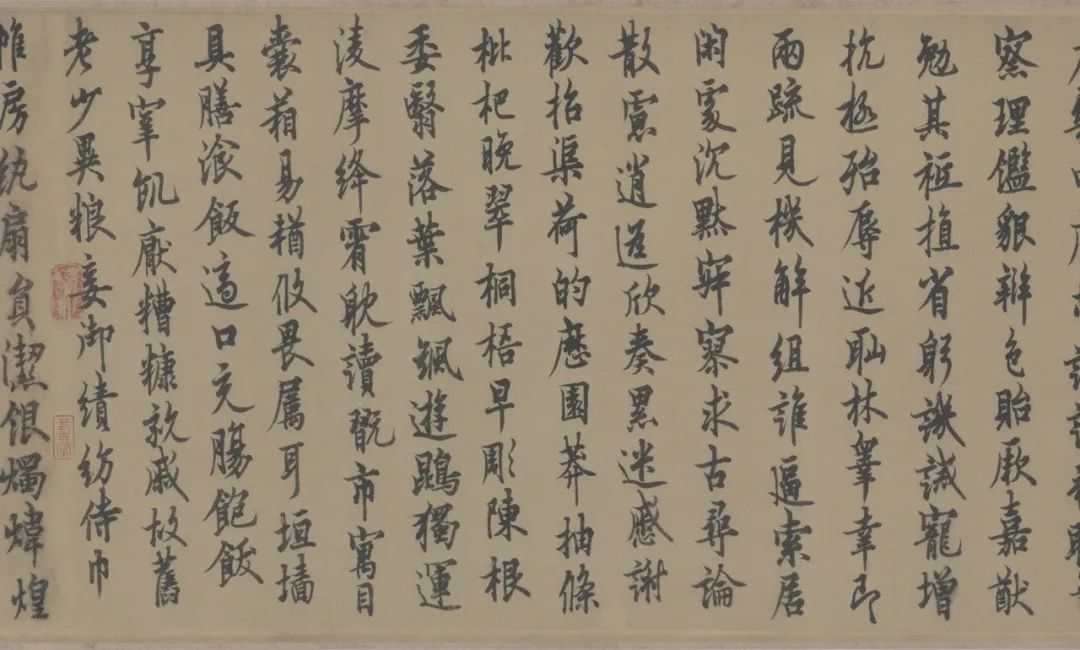 察理鑑貌辯色貽厥嘉猷
勉其祗植省躬譏誡寵增
抗極殆辱近耻林睪幸即
兩疏見機解組誰逼索居
閑處沉默寂寥求古尋論
散慮逍遥欣奏累遣慼謝
歡招渠荷的歷園莽抽條
枇杷晚翠桐梧早彫陳根
委翳落葉飄颻遊鵾獨運
淩摩絳霄耽讀翫市寓目
囊箱易輶攸畏属耳垣墻
具膳飡飯適口充腸飽飫
享宰飢厭糟糠親戚故舊
老少異粮妾御績紡侍巾
帷房紈扇員潔銀燭煒煌